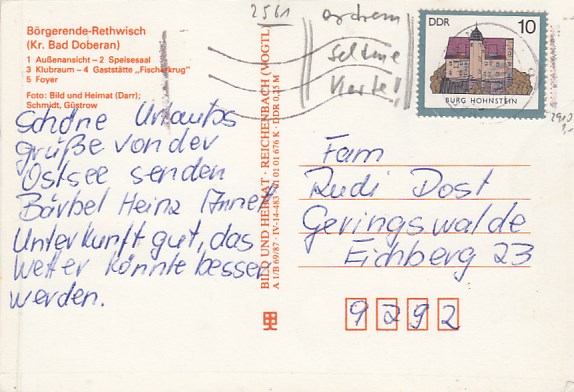 Börgerende-Rethwisch
(Kr. Bad Doberan)
1 Außenansicht – 2 Speisesaal
3 Klubraum – 4 Gaststätte „Fischerkrug"
5 Foyer
Foto: Bild und Heimat (Darr);
Schmidt, Güstrow
Schöne Urlaubs
grüße von der
Ostsee senden
Bärbel Heinz Annett
Unterkunft gut, das
wetter könnte besser
werden.
BILD UND HEIMAT · REICHENBACH (VOGTL)
A 1/B 69/87 · IV-14-483 01 01 01 676 K · DDR 0,25 M
2561
seltene
Karte!
DDR 10
BURG HOHNSTEIN
Fam
Rudi Dost
Geringswalde
Eichberg 23
9292